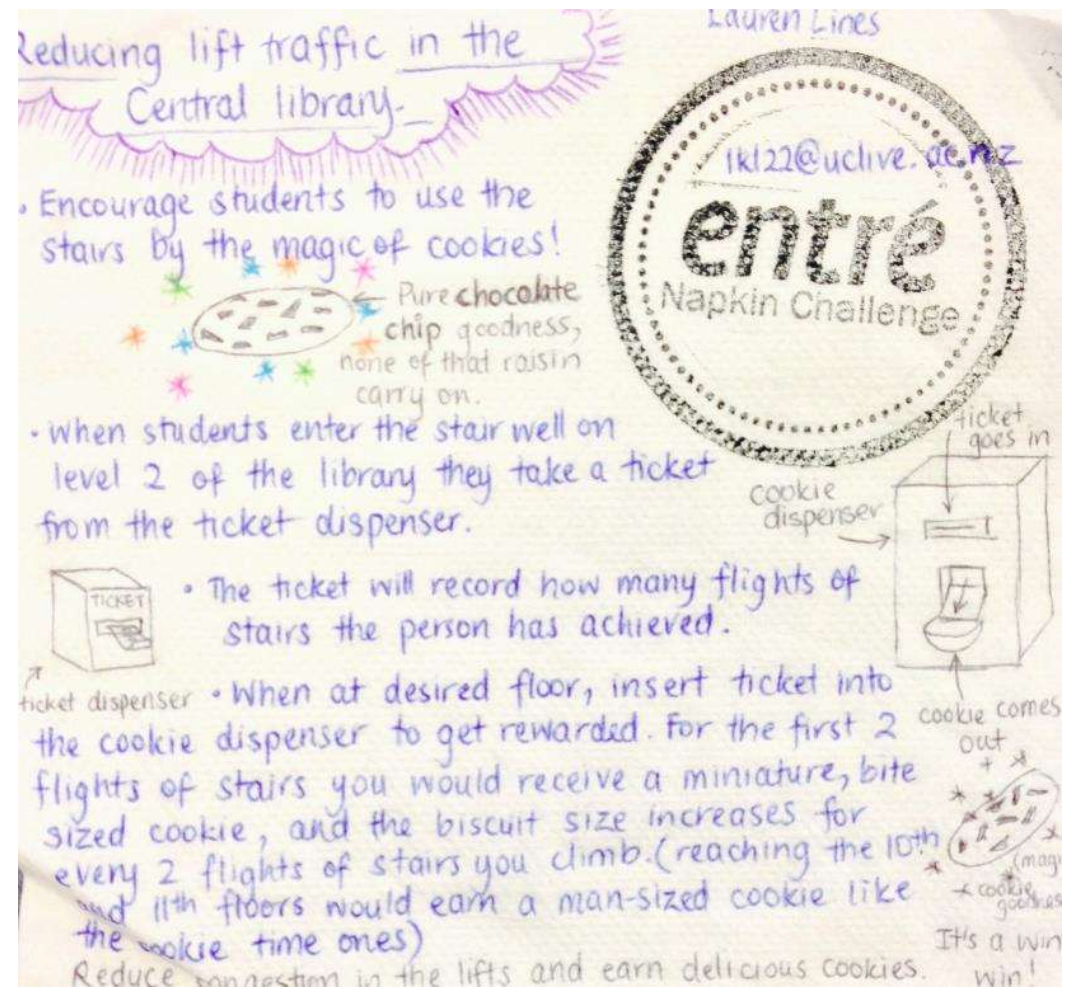 Lauren Lines
Reducing lift traffic in the
Central library.
lkl22@uclive.ac.nz
entré
Napkin Challenge
• Encourage students to use the
stairs by the magic of cookies!
Pure chocolate
chip goodness,
none of that raisin
carry on.
• when students enter the stairwell on
level 2 of the library they take a ticket
from the ticket dispenser.
ticket
goes in
cookie
dispenser
TICKET
ticket dispenser
• The ticket will record how many flights of
stairs the person has achieved.
• When at desired floor, insert ticket into
the cookie dispenser to get rewarded. For the first 2
flights of stairs you would receive a miniature, bite
sized cookie, and the biscuit size increases for
every 2 flights of stairs you climb. (reaching the 10th
and 11th floors would earn a man-sized cookie like
the cookie time ones)
cookie comes
out
cookie
It's a win
win!
Reduce congestion in the lifts and earn delicious cookies.